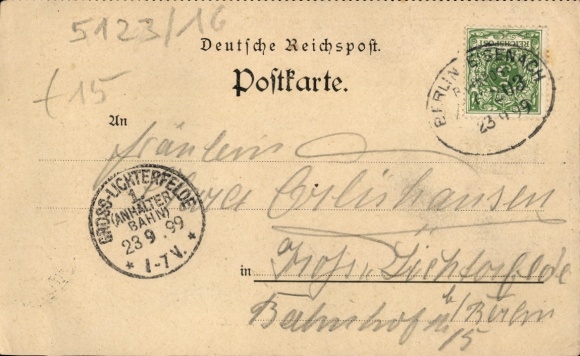 5123/16
Deutsche Reichspost.
Postkarte.
REICHSPOST
BERLIN EISENACH
23 9 99
15
An
Fräulein
GROSS-LICHTERFELDE
1.
(ANHALTER
BAHN)
23 9. 99
* 1-7 V. *
in Gross Lichterfelde
b/Berlin
Bahnhofstr
15